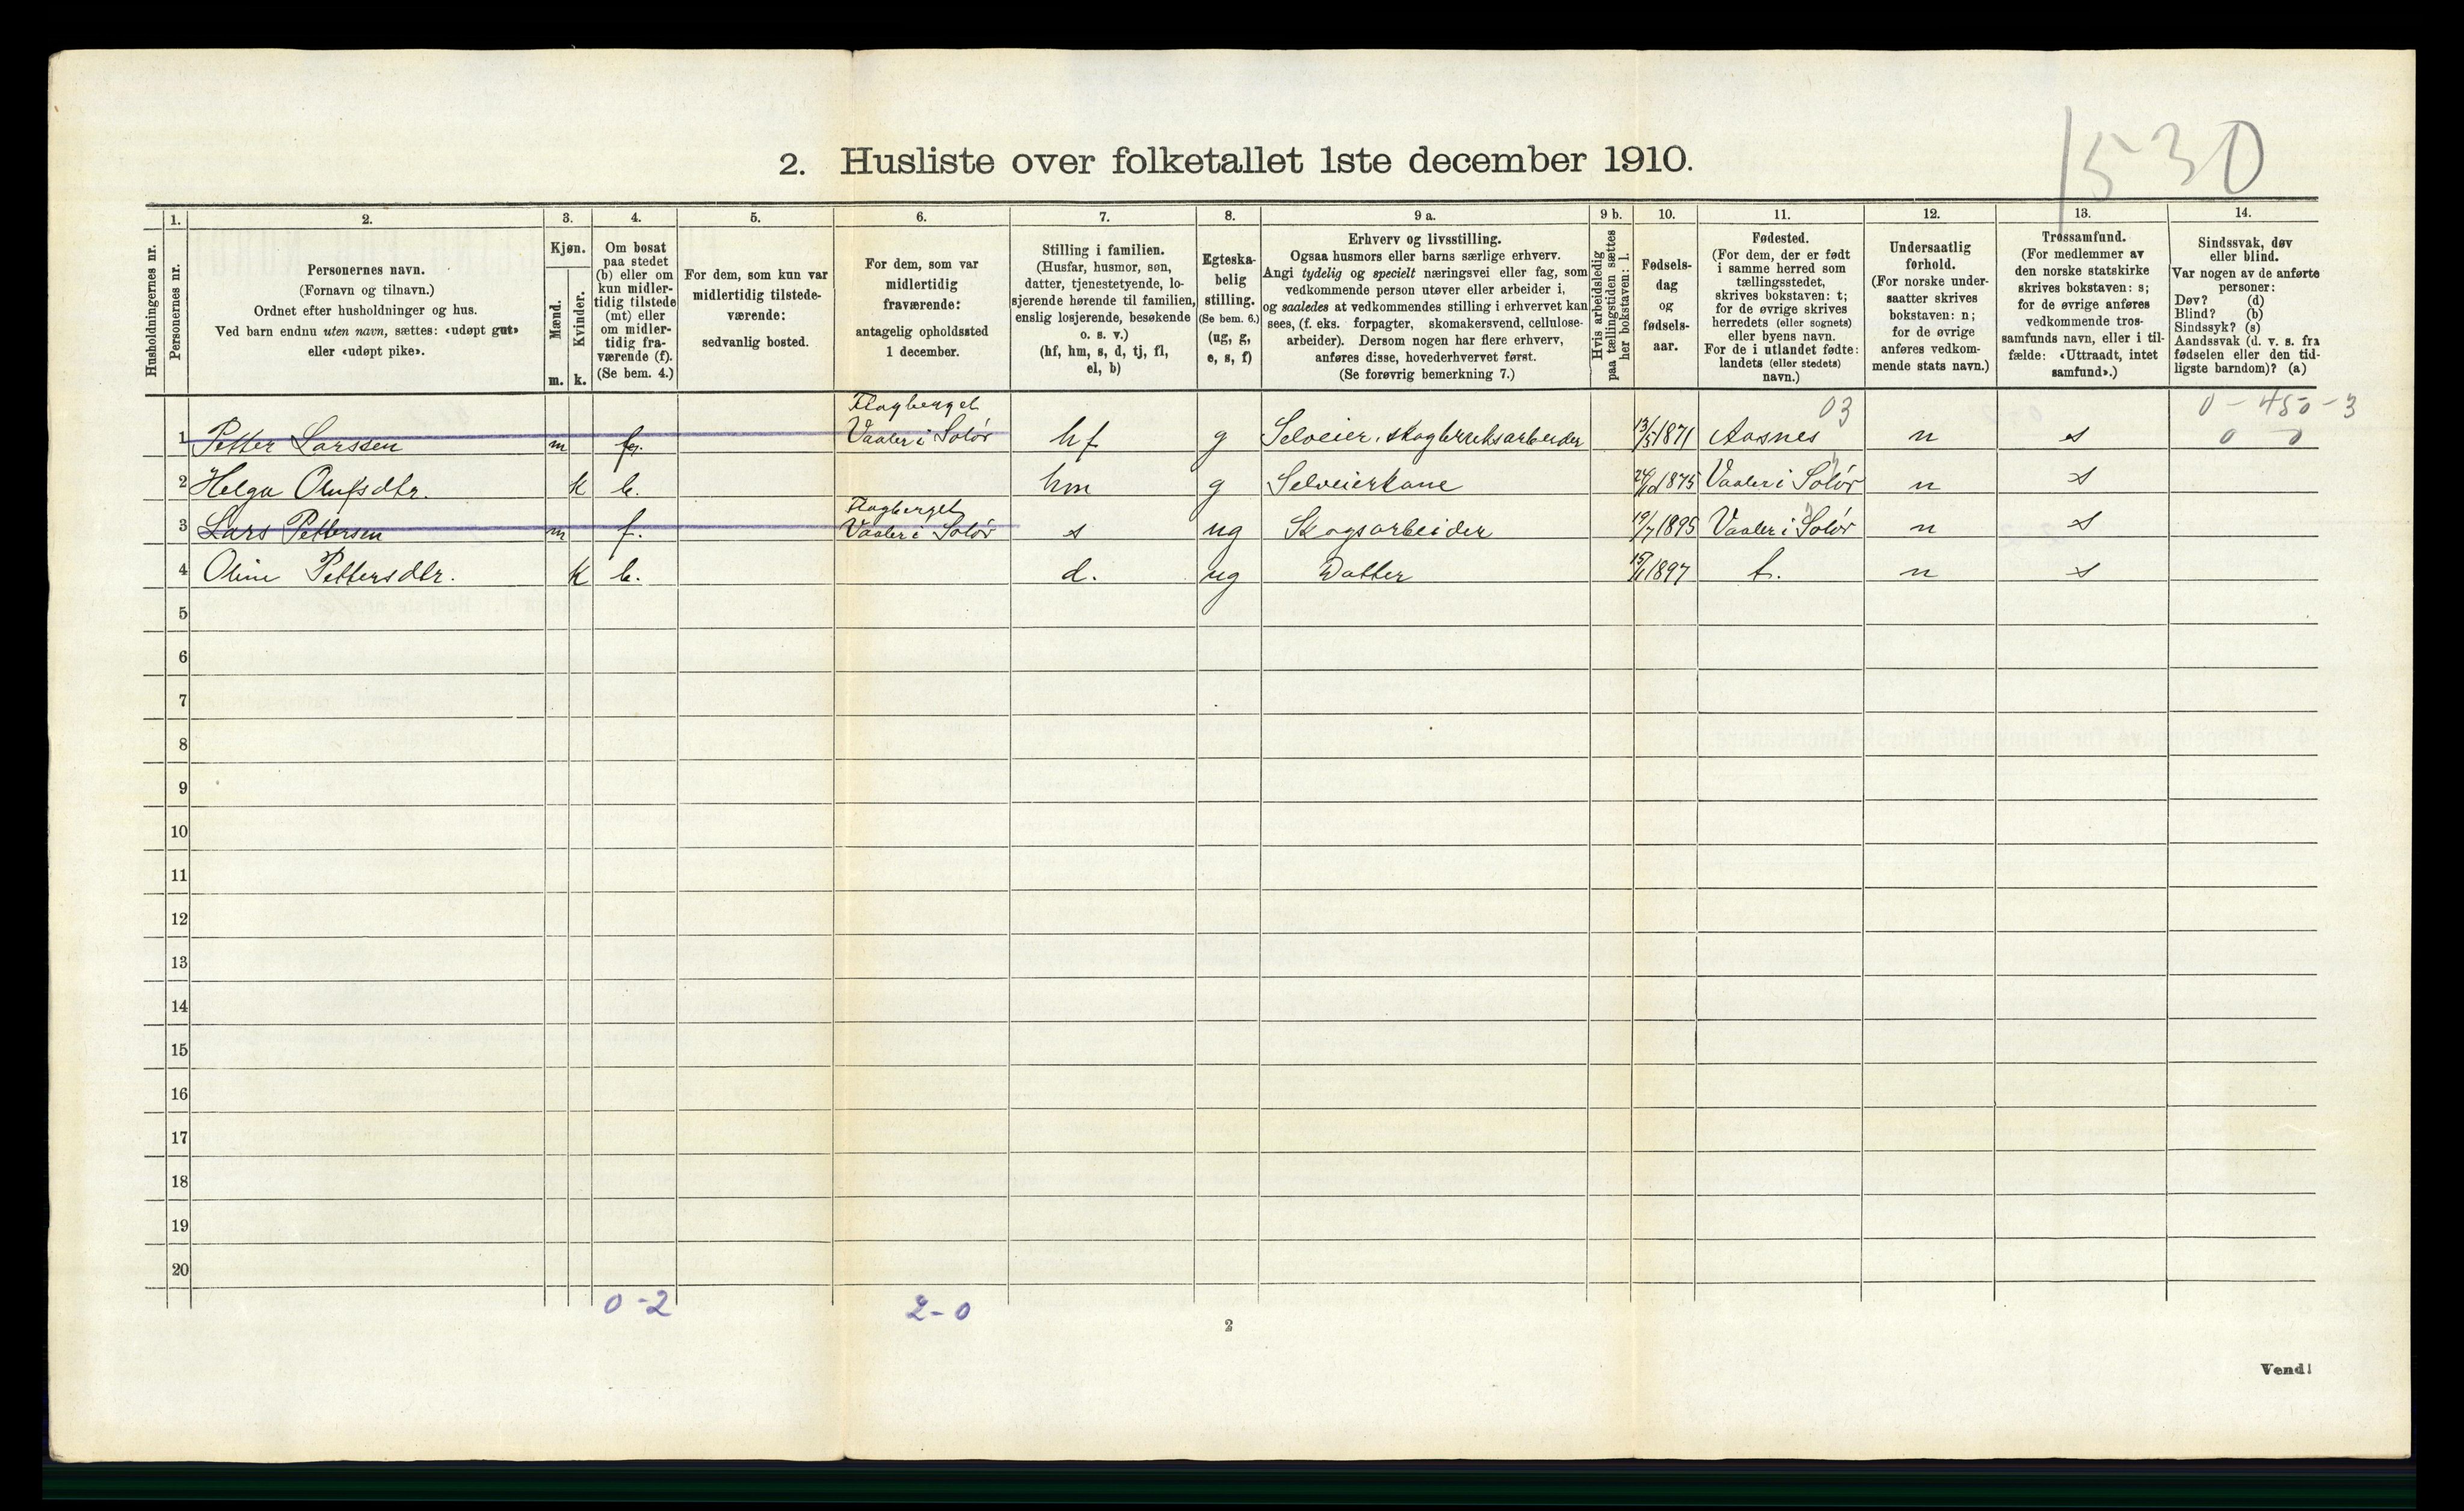 1530
2. Husliste over folketallet 1ste december 1910.
1. 2. 3. 4. 5. 6. 7. 8. 9 a. 9 b. 10. 11. 12. 13. 14.
Husholdningernes nr.
Personernes nr.
Personernes navn.
(Fornavn og tilnavn.)
Ordnet efter husholdninger og hus.
Ved barn endnu uten navn, sættes: «udøpt gut»
eller «udøpt pike».
Kjøn.
Mænd.
Kvinder.
m. k.
Om bosat
paa stedet
(b) eller om
kun midler-
tidig tilstede
(mt) eller
om midler-
tidig fra-
værende (f).
(Se bem. 4.)
For dem, som kun var
midlertidig tilstede-
værende:
sedvanlig bosted.
For dem, som var
midlertidig
fraværende:
antagelig opholdssted
1 december.
Stilling i familien.
(Husfar, husmor, søn,
datter, tjenestetyende, lo-
sjerende hørende til familien,
enslig losjerende, besøkende
o. s. v.)
(hf, hm, s, d, tj, fl,
el, b)
Egteska-
belig
stilling.
(Se bem. 6.)
(ug, g,
e, s, f)
Erhverv og livsstilling.
Ogsaa husmors eller barns særlige erhverv.
Angi tydelig og specielt næringsvei eller fag, som
vedkommende person utøver eller arbeider i,
og saaledes at vedkommendes stilling i erhvervet kan
sees, (f. eks. forpagter, skomakersvend, cellulose-
arbeider). Dersom nogen har flere erhverv,
anføres disse, hovederhvervet først.
(Se forøvrig bemerkning 7.)
Hvis arbeidsledig
paa tællingstiden sættes
her bokstaven: l.
Fødsels-
dag
og
fødsels-
aar.
Fødested.
(For dem, der er født
i samme herred som
tællingsstedet,
skrives bokstaven: t;
for de øvrige skrives
herredets (eller sognets)
eller byens navn.
For de i utlandet fødte:
landets (eller stedets)
navn.)
Undersaatlig
forhold.
(For norske under-
saatter skrives
bokstaven: n;
for de øvrige
anføres vedkom-
mende stats navn.)
Trossamfund.
(For medlemmer av
den norske statskirke
skrives bokstaven: s;
for de øvrige anføres
vedkommende tros-
samfunds navn, eller i til-
fælde: «Uttraadt, intet
samfund».)
Sindssvak, døv
eller blind.
Var nogen av de anførte
personer:
Døv? (d)
Blind? (b)
Sindssyk? (s)
Aandssvak (d. v. s. fra
fødselen eller den tid-
ligste barndom)? (a)
03 0 - 450 - 3
Flagberget
1 Petter Larssen m f. Vaaler i Solør hf g Selveier, skogbruksarbeider 13/5 1871 Aasnes n s 0 0
2 Helga Olufsdtr. k b. hm g Selveierkone 1875 Vaaler i Solør n s
Flagberget
3 Lars Pettersen m f. Vaaler i Solør s ug Skogsarbeider 19/7 1895 Vaaler i Solør n s
4 Oline Pettersdtr. k b. d. ug Datter 1897 t. n s
5
6
7
8
9
10
11
12
13
14
15
16
17
18
19
20
0-2 2-0
2
Vend!